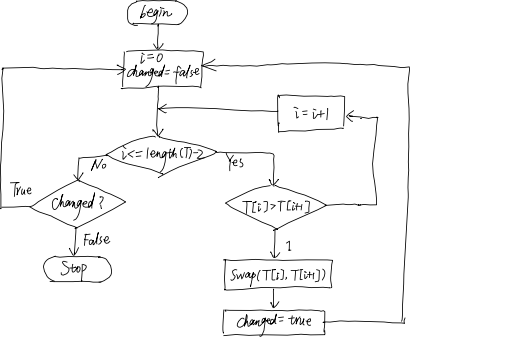 begin
i=0
changed=false
i=i+1
i<=length(T)-2
No
Yes
True
Changed?
T[i]>T[i+1]
False
1
Stop
Swap(T[i],T[i+1])
changed=true